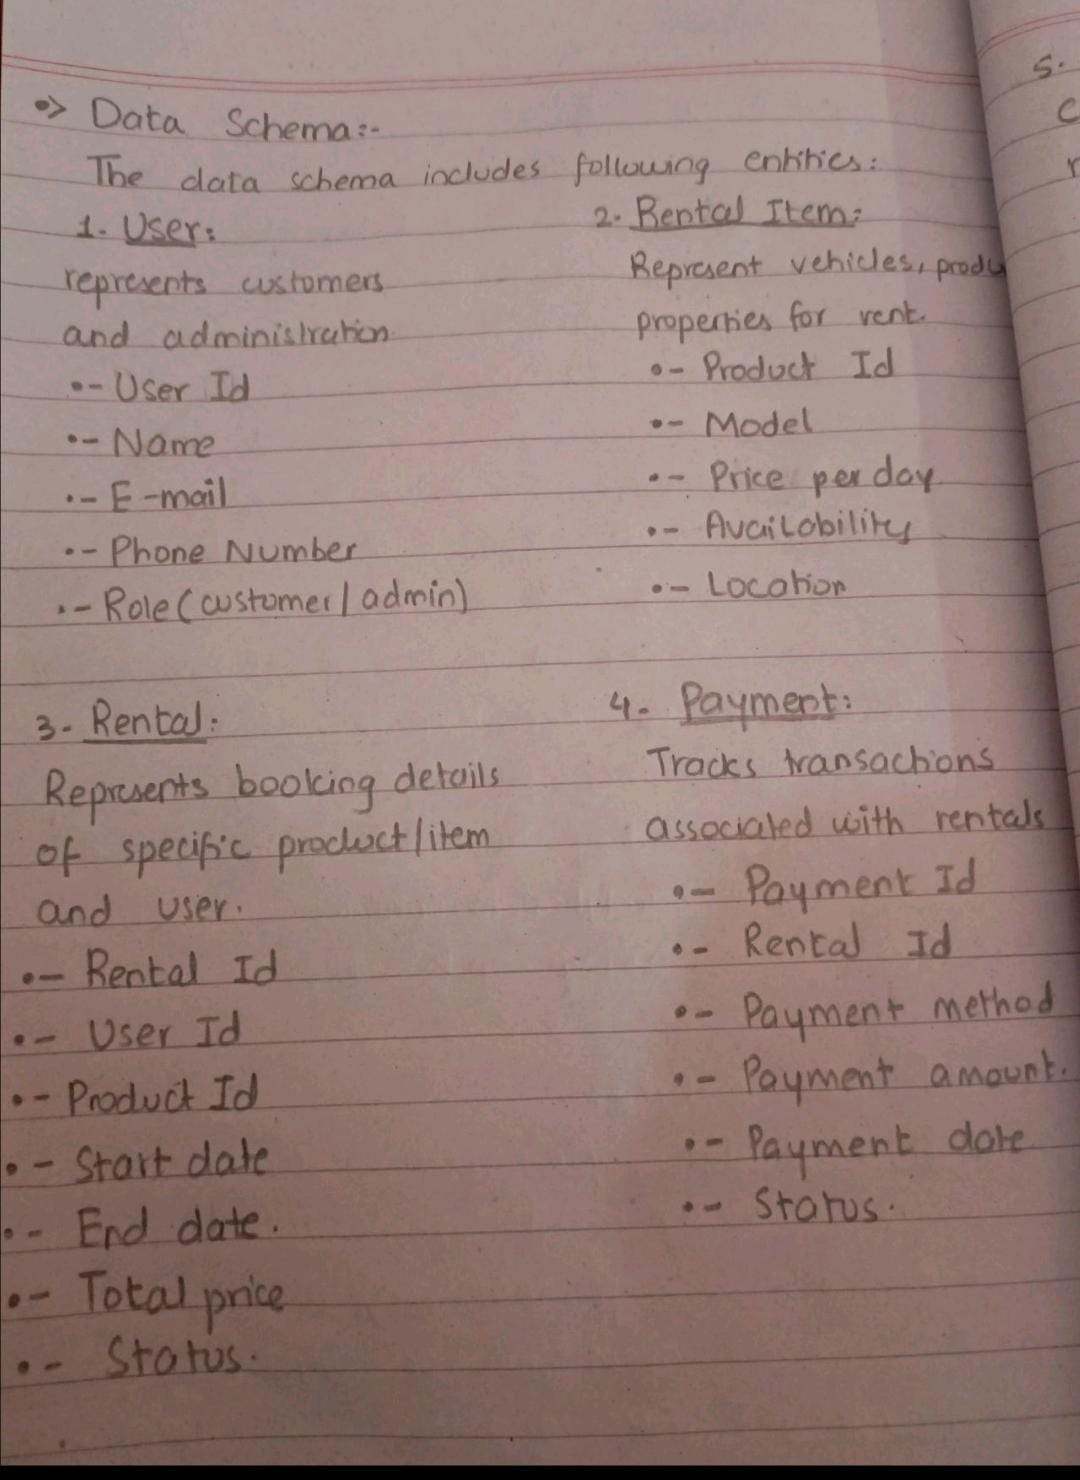 •> Data Schema:-
The data schema includes following entities:
1. User:
represents customers
and administration
•- User Id
•- Name
•- E-mail
•- Phone Number
•- Role (customer/admin)
2. Rental Item:
Represent vehicles,
properties for rent.
•- Product Id
•- Model
•- Price per day
•- Availability
•- Location
3. Rental:
Represents booking details
of specific product/item
and user.
•- Rental Id
•- User Id
•- Product Id
•- Start date
•- End date.
•- Total price
•- Status.
4. Payment:
Tracks transactions
associated with rentals
•- Payment Id
•- Rental Id
•- Payment method
•- Payment amount.
•- Payment date
•- Status.
5.